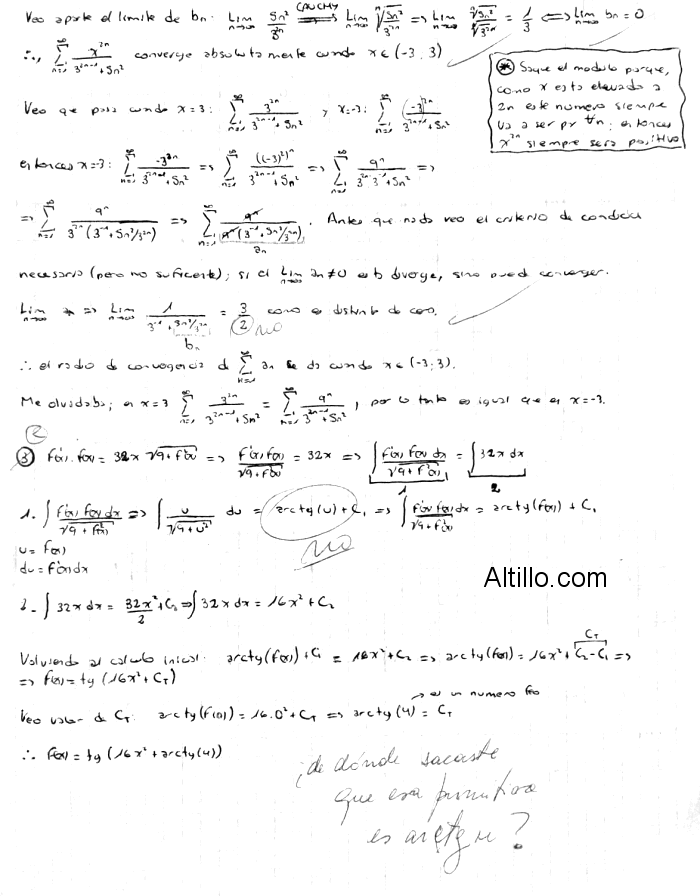 Veo aparte el límite de bn: Lim n→∞ 5n²/3^2n CAUCHY ⟹ Lim n→∞ ⁿ√(5n²/3^2n) => Lim n→∞ ⁿ√5n²/ⁿ√3^2n = 1/3 ⟺ Lim n→∞ bn = 0
∴, ∑ n=1 ∞ x^2n/(3^(2n-1)+5n²) converge absolutamente cuando x∈(-3,3)
* Saque el modulo porque,
como x esta elevado a
2n este numero siempre
va a ser par ∀n; entonces
x^2n siempre sera positivo
Veo que pasa cuando x=3: ∑ n=1 ∞ 3^2n/(3^(2n-1)+5n²) y x=-3: ∑ n=1 ∞ (-3)^2n/(3^(2n-1)+5n²)
entonces x=-3: ∑ n=1 ∞ -3^2n/(3^(2n-1)+5n²) => ∑ n=1 ∞ ((-3)²)^n/(3^(2n-1)+5n²) => ∑ n=1 ∞ 9^n/(3^2n·3^-1+5n²) =>
=> ∑ n=1 ∞ 9^n/(3^2n(3^-1+5n²/3^2n)) => ∑ n=1 ∞ 9^n/(9^n(3^-1+5n²/3^2n)). Antes que nada veo el criterio de condicion
an
necesaria (pero no suficiente); si el Lim n→∞ an≠0 esto diverge, sino puede converger.
Lim n→∞ => Lim n→∞ 1/(3^-1+5n²/3^2n) = 3/2 no como es distinto de cero,
bn
∴ el radio de convergencia d ∑ n=1 ∞ an se da cuando x∈(-3;3).
Me olvidaba; en x=3 ∑ n=1 ∞ 3^2n/(3^(2n-1)+5n²) = ∑ n=1 ∞ 9^n/(3^(2n-1)+5n²), por lo tanto es igual que en x=-3.
2
③ f'(x).f(x) = 32x √(9+f²(x)) => f'(x)f(x)/√(9+f²(x)) = 32x => ∫ f'(x)f(x)dx/√(9+f²(x)) = ∫ 32x dx
1 2
1. ∫ f'(x)f(x)dx/√(9+f²(x)) => ∫ u/√(9+u²) du = arctg(u)+C₁ => ∫ f'(x)f(x)dx/√(9+f²(x)) = arctg(f(x)) + C₁
no
u = f(x)
du = f'(x)dx
Altillo.com
2- ∫ 32x dx = 32x²/2 + C₂ => ∫ 32x dx = 16x² + C₂
Volviendo al calculo inicial: arctg(f(x))+C₁ = 16x²+C₂ => arctg(f(x)) = 16x²+C₂-C₁ =>
CT
=> f(x) = tg(16x²+CT)
→ es un numero feo
Veo valor de CT: arctg(f(0)) = 16.0²+CT => arctg(4) = CT
∴ f(x) = tg(16x²+arctg(4))
¿de dónde sacaste
que esa primitiva
es arctg u?